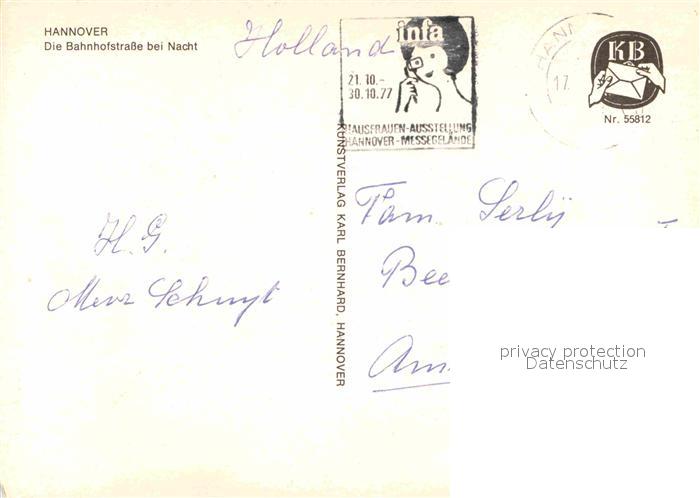 HANNOVER
Die Bahnhofstraße bei Nacht
Holland
infa
21. 10. -
30. 10. 77
HAUSFRAUEN-AUSSTELLUNG
HANNOVER-MESSEGELÄNDE
HANN
17.
KB
Nr. 55812
KUNSTVERLAG KARL BERNHARD, HANNOVER
H. G.
Mevr Schuyt
Fam. Serlij
Bee
Am
privacy protection
Datenschutz